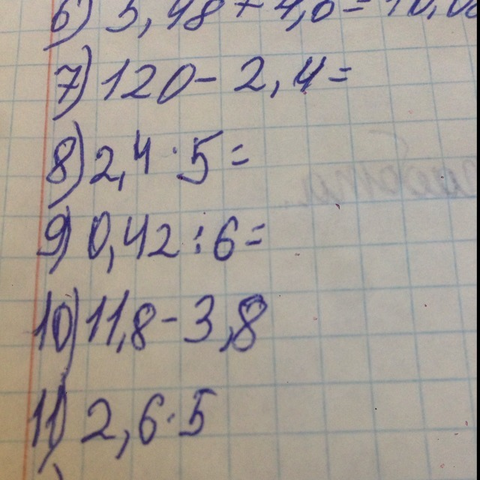 6) 5,48 + 4,6 = 10,08
7) 120 - 2,4 =
8) 2,4 · 5 =
9) 0,42 : 6 =
10) 11,8 - 3,8
11) 2,6 · 5